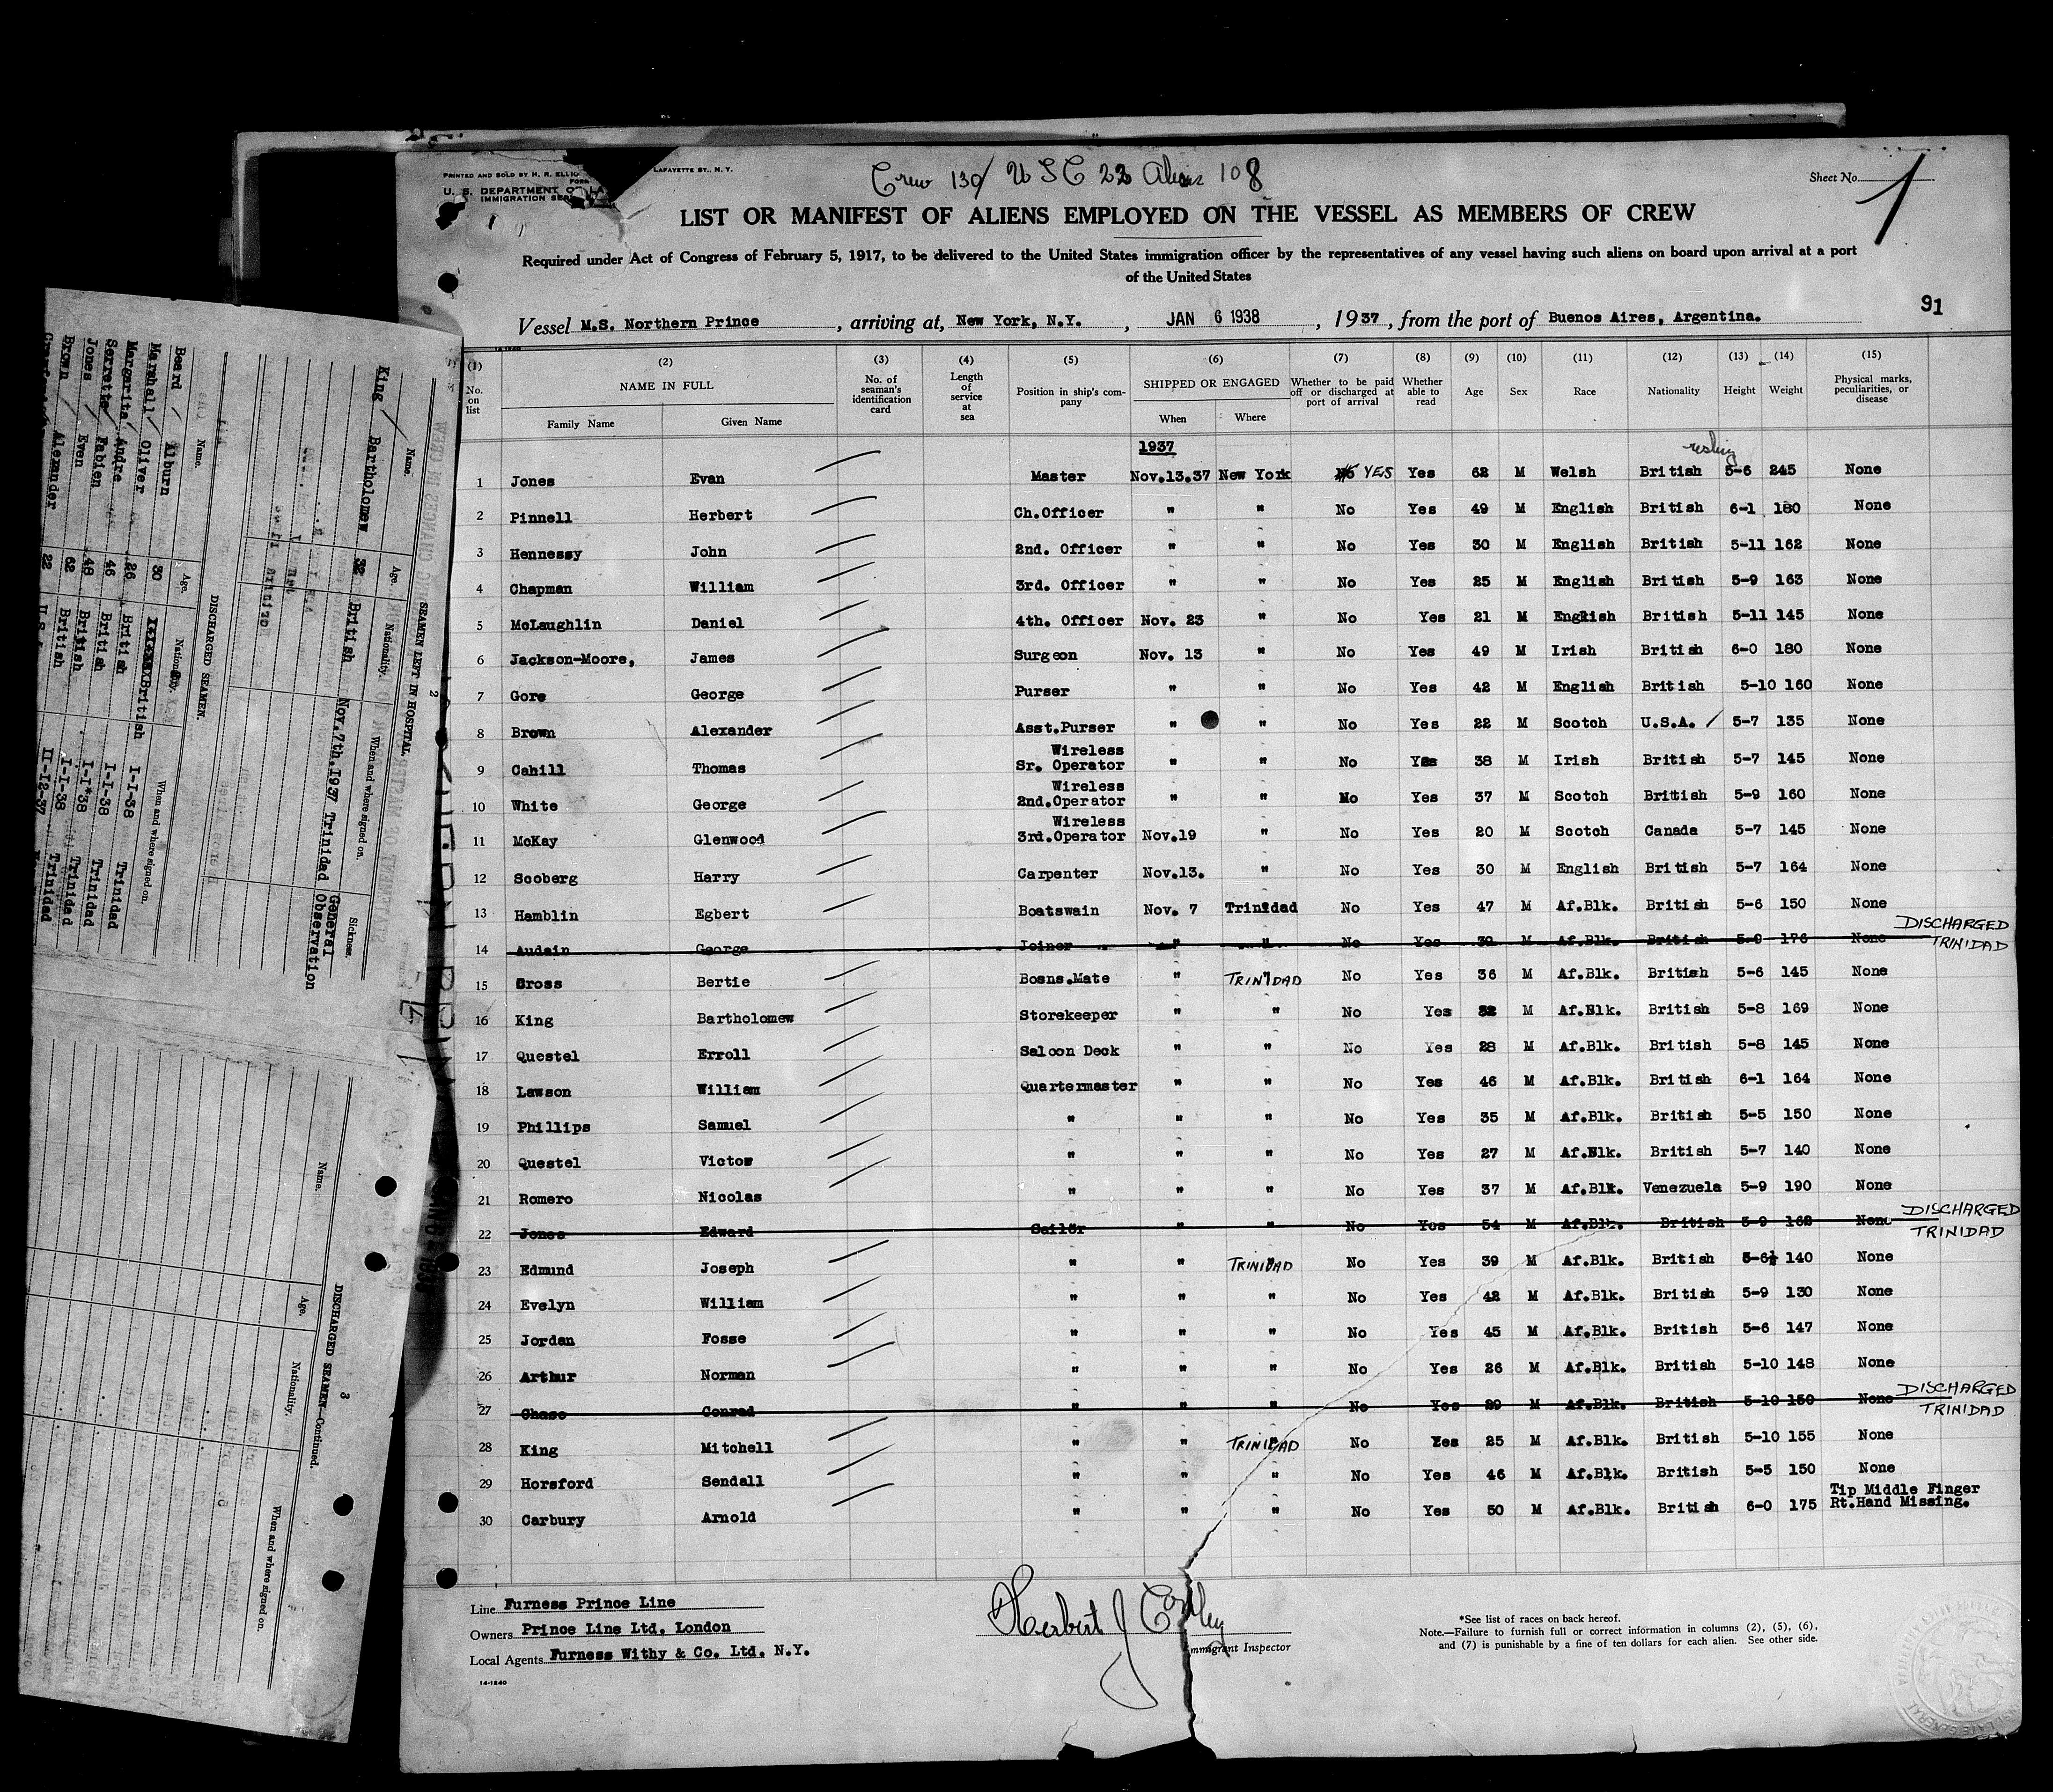 PRINTED AND SOLD BY H. R. ELLIO LAFAYETTE ST., N. Y.
FORM
U. S. DEPARTMENT OF LA
IMMIGRATION SER
Crew 130 / USC 22 Aliens 108
Sheet No. 1
LIST OR MANIFEST OF ALIENS EMPLOYED ON THE VESSEL AS MEMBERS OF CREW
Required under Act of Congress of February 5, 1917, to be delivered to the United States immigration officer by the representatives of any vessel having such aliens on board upon arrival at a port
of the United States
91
Vessel M.S. Northern Prince, arriving at, New York, N.Y., JAN 6 1938, 1937, from the port of Buenos Aires, Argentina.
(1) (2) (3) (4) (5) (6) (7) (8) (9) (10) (11) (12) (13) (14) (15)
No. on list NAME IN FULL Family Name Given Name No. of seaman's identification card Length of service at sea Position in ship's company SHIPPED OR ENGAGED When Where Whether to be paid off or discharged at port of arrival Whether able to read Age Sex Race Nationality Height Weight Physical marks, peculiarities, or disease
1937
1 Jones Evan Master Nov.13.37 New York YES Yes 62 M Welsh British 5-6 245 None
2 Pinnell Herbert Ch.Officer " " No Yes 49 M English British 6-1 180 None
3 Hennessy John 2nd. Officer " " No Yes 30 M English British 5-11 162 None
4 Chapman William 3rd. Officer " " No Yes 25 M English British 5-9 163 None
5 McLaughlin Daniel 4th. Officer Nov. 23 " No Yes 21 M English British 5-11 145 None
6 Jackson-Moore, James Surgeon Nov. 13 " No Yes 49 M Irish British 6-0 180 None
7 Gore George Purser " " No Yes 42 M English British 5-10 160 None
8 Brown Alexander Asst.Purser " " No Yes 22 M Scotch U.S.A. / 5-7 135 None
9 Cahill Thomas Wireless Sr. Operator " " No Yes 38 M Irish British 5-7 145 None
10 White George Wireless 2nd.Operator " " No Yes 37 M Scotch British 5-9 160 None
11 McKay Glenwood Wireless 3rd.Operator Nov.19 " No Yes 20 M Scotch Canada 5-7 145 None
12 Scoberg Harry Carpenter Nov.13. " No Yes 30 M English British 5-7 164 None
13 Hamblin Egbert Boatswain Nov. 7 Trinidad No Yes 47 M Af.Blk. British 5-6 150 None
14 Audain George Joiner " " No Yes 39 M Af.Blk. British 5-9 176 None DISCHARGED TRINIDAD
15 Gross Bertie Bosns.Mate " TRINIDAD No Yes 36 M Af.Blk. British 5-6 145 None
16 King Bartholomew Storekeeper " " No Yes 32 M Af.Blk. British 5-8 169 None
17 Questel Erroll Saloon Deck " " No Yes 28 M Af.Blk. British 5-8 145 None
18 Lawson William Quartermaster " " No Yes 46 M Af.Blk. British 6-1 164 None
19 Phillips Samuel " " " No Yes 35 M Af.Blk. British 5-5 150 None
20 Questel Victor " " " No Yes 27 M Af.Blk. British 5-7 140 None
21 Romero Nicolas " " " No Yes 37 M Af.Blk. Venezuela 5-9 190 None
22 Jones Edward Sailor " " No Yes 54 M Af.Blk. British 5-9 168 None DISCHARGED TRINIDAD
23 Edmund Joseph " " TRINIDAD No Yes 39 M Af.Blk. British 5-6½ 140 None
24 Evelyn William " " " No Yes 42 M Af.Blk. British 5-9 130 None
25 Jordan Fosse " " " No Yes 45 M Af.Blk. British 5-6 147 None
26 Arthur Norman " " " No Yes 26 M Af.Blk. British 5-10 148 None
27 Chase Conrad " " " No Yes 29 M Af.Blk. British 5-10 150 None DISCHARGED TRINIDAD
28 King Mitchell " " TRINIDAD No Yes 25 M Af.Blk. British 5-10 155 None
29 Horsford Sendall " " " No Yes 46 M Af.Blk. British 5-5 150 None
30 Carbury Arnold " " " No Yes 50 M Af.Blk. British 6-0 175 Tip Middle Finger Rt.Hand Missing.
Line Furness Prince Line
Owners Prince Line Ltd. London
Local Agents Furness Withy & Co. Ltd. N.Y.
14-1240
Herbert J
Immigrant Inspector
*See list of races on back hereof.
Note.—Failure to furnish full or correct information in columns (2), (5), (6),
and (7) is punishable by a fine of ten dollars for each alien. See other side.
2
SEAMEN LEFT IN HOSPITAL
Name. Age. Nationality. When and where signed on. Sickness.
King / Bartholomew 32 British Nov.7th.1937 Trinidad General Observation
DISCHARGED SEAMEN.
Name. Age. Nationality. When and where signed on.
Beard / Alburn 30 British I-I-38 Trinidad
Marshall / Oliver 26 British I-I-38 Trinidad
Margarita / Andre 46 British I-I-38 Trinidad
Serrette / Fabien 48 British I-I-38 Trinidad
Jones / Even 62 British
Brown / Alexander 22 U.S. II-I2-37
3
DISCHARGED SEAMEN—Continued.
Name. Age. Nationality. When and where signed on.